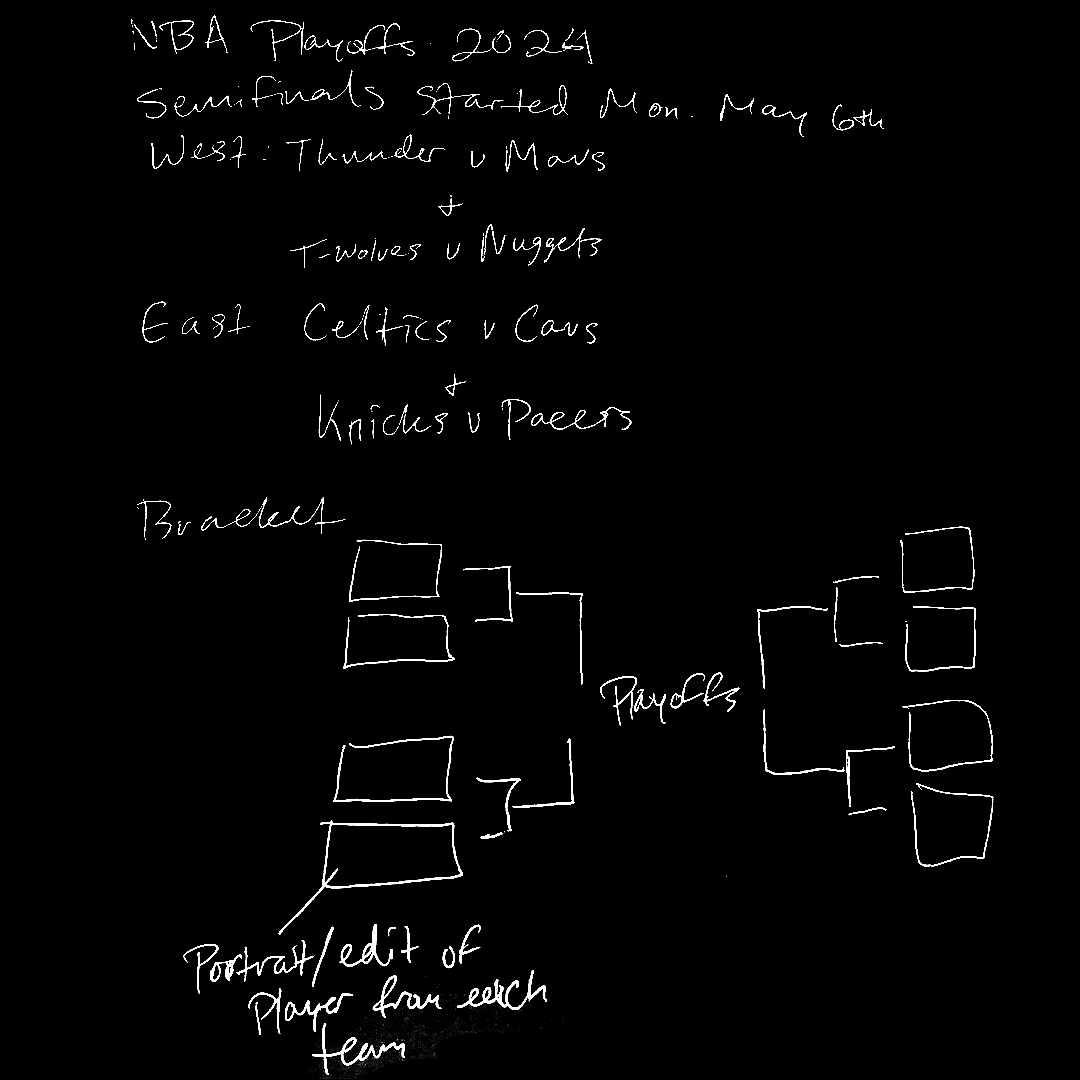 NBA Playoffs 2024
Semifinals started Mon. May 6th
West: Thunder v Mavs
+
T-wolves v Nuggets
East Celtics v Cavs
+
Knicks v Pacers
Bracket
Playoffs
Portrait/edit of
Player from each
team